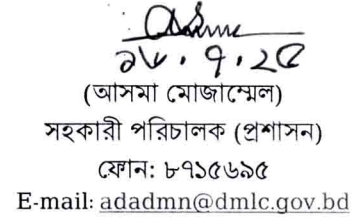 (আসমা মোজাম্মেল)
সহকারী পরিচালক (প্রশাসন)
ফোন: ৮৭১৫৬৯৫
E-mail: adadmn@dmlc.gov.bd